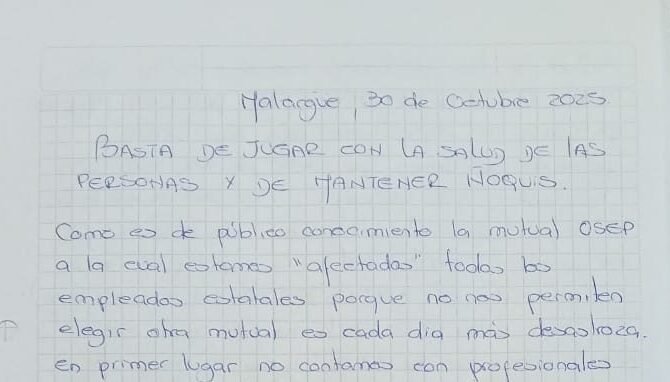 Malargüe, 30 de Octubre 2025
BASTA DE JUGAR CON LA SALUD DE LAS
PERSONAS Y DE MANTENER ÑOQUIS.
Como es de público conocimiento la mutual OSEP
a la cual estamos "afectados" todos los
empleados estatales porque no nos permiten
elegir otra mutual es cada dia más desastroza.
en primer lugar no contamos con profesionales